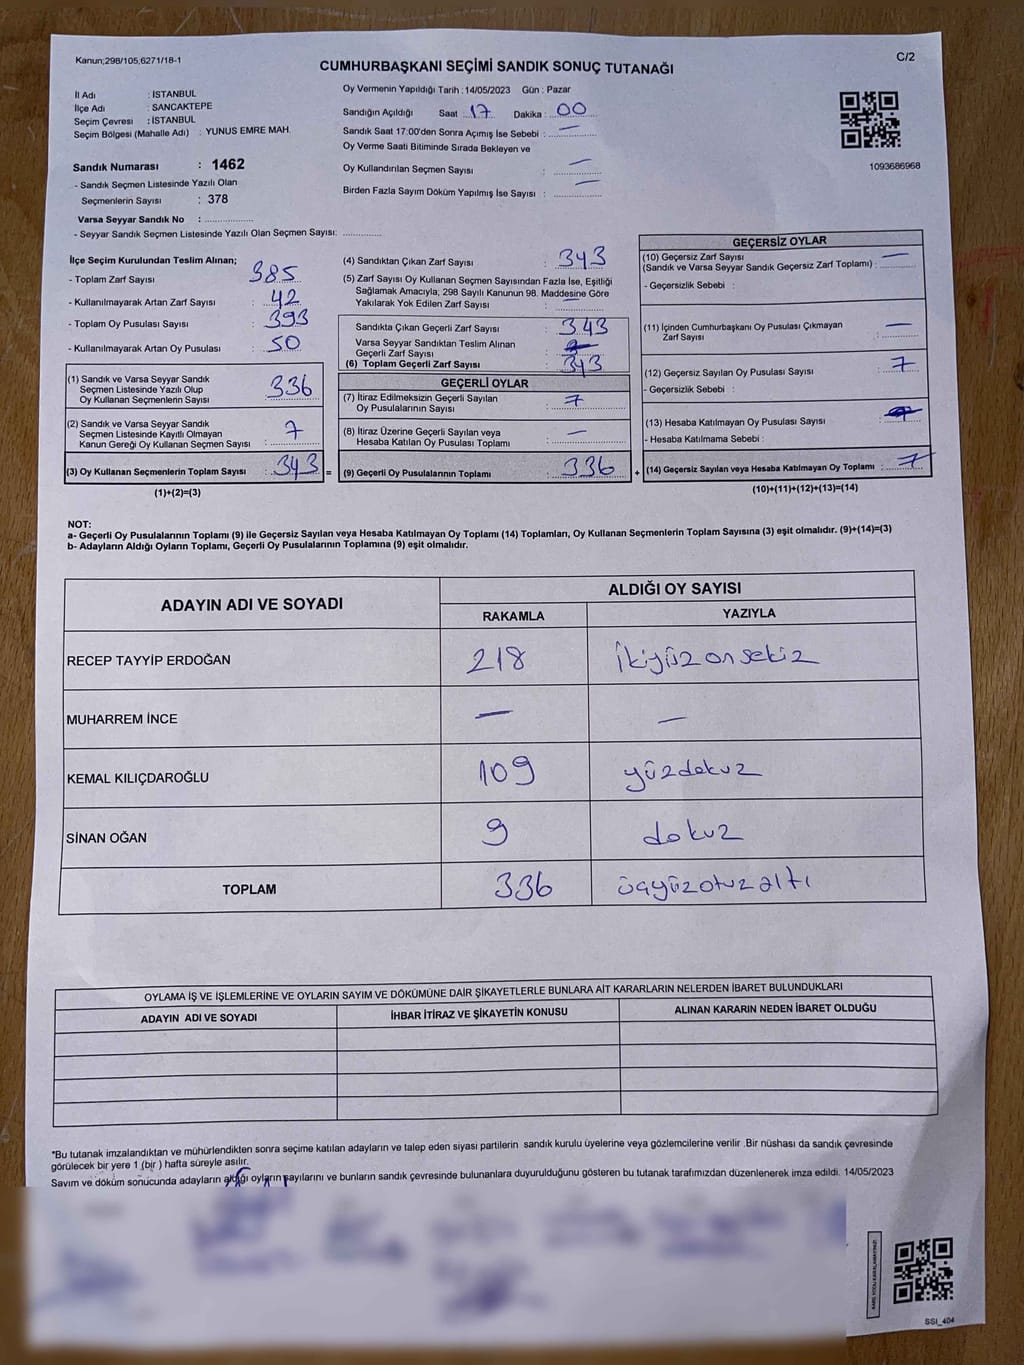 Kanun;298/105,6271/18-1
C/2
CUMHURBAŞKANI SEÇİMİ SANDIK SONUÇ TUTANAĞI
İl Adı : İSTANBUL
İlçe Adı : SANCAKTEPE
Seçim Çevresi : İSTANBUL
Seçim Bölgesi (Mahalle Adı) : YUNUS EMRE MAH.
Sandık Numarası : 1462
- Sandık Seçmen Listesinde Yazılı Olan
Seçmenlerin Sayısı : 378
Varsa Seyyar Sandık No : ..................
- Seyyar Sandık Seçmen Listesinde Yazılı Olan Seçmen Sayısı: .............
Oy Vermenin Yapıldığı Tarih : 14/05/2023 Gün : Pazar
Sandığın Açıldığı Saat 17 Dakika : 00
Sandık Saat 17:00'den Sonra Açımış İse Sebebi : —
Oy Verme Saati Bitiminde Sırada Bekleyen ve
Oy Kullandırılan Seçmen Sayısı : —
Birden Fazla Sayım Döküm Yapılmış İse Sayısı : —
1093686968
İlçe Seçim Kurulundan Teslim Alınan;
- Toplam Zarf Sayısı : 385
- Kullanılmayarak Artan Zarf Sayısı : 42
- Toplam Oy Pusulası Sayısı : 393
- Kullanılmayarak Artan Oy Pusulası : 50
(1) Sandık ve Varsa Seyyar Sandık
Seçmen Listesinde Yazılı Olup
Oy Kullanan Seçmenlerin Sayısı : 336
(2) Sandık ve Varsa Seyyar Sandık
Seçmen Listesinde Kayıtlı Olmayan
Kanun Gereği Oy Kullanan Seçmen Sayısı : 7
(3) Oy Kullanan Seçmenlerin Toplam Sayısı : 343 =
(1)+(2)=(3)
(4) Sandıktan Çıkan Zarf Sayısı : 343
(5) Zarf Sayısı Oy Kullanan Seçmen Sayısından Fazla İse, Eşitliği
Sağlamak Amacıyla, 298 Sayılı Kanunun 98. Maddesine Göre
Yakılarak Yok Edilen Zarf Sayısı : —
Sandıkta Çıkan Geçerli Zarf Sayısı : 343
Varsa Seyyar Sandıktan Teslim Alınan
Geçerli Zarf Sayısı :
(6) Toplam Geçerli Zarf Sayısı : 343
GEÇERLİ OYLAR
(7) İtiraz Edilmeksizin Geçerli Sayılan
Oy Pusulalarının Sayısı : 7
(8) İtiraz Üzerine Geçerli Sayılan veya
Hesaba Katılan Oy Pusulası Toplamı : —
(9) Geçerli Oy Pusulalarının Toplamı : 336 +
GEÇERSİZ OYLAR
(10) Geçersiz Zarf Sayısı
(Sandık ve Varsa Seyyar Sandık Geçersiz Zarf Toplamı) : —
- Geçersizlik Sebebi :
(11) İçinden Cumhurbaşkanı Oy Pusulası Çıkmayan
Zarf Sayısı : —
(12) Geçersiz Sayılan Oy Pusulası Sayısı : 7
- Geçersizlik Sebebi :
(13) Hesaba Katılmayan Oy Pusulası Sayısı :
- Hesaba Katılmama Sebebi :
(14) Geçersiz Sayılan veya Hesaba Katılmayan Oy Toplamı : 7
(10)+(11)+(12)+(13)=(14)
NOT:
a- Geçerli Oy Pusulalarının Toplamı (9) ile Geçersiz Sayılan veya Hesaba Katılmayan Oy Toplamı (14) Toplamları, Oy Kullanan Seçmenlerin Toplam Sayısına (3) eşit olmalıdır. (9)+(14)=(3)
b- Adayların Aldığı Oyların Toplamı, Geçerli Oy Pusulalarının Toplamına (9) eşit olmalıdır.
ADAYIN ADI VE SOYADI
ALDIĞI OY SAYISI
RAKAMLA YAZIYLA
RECEP TAYYİP ERDOĞAN 218 İkiyüz on sekiz
MUHARREM İNCE — —
KEMAL KILIÇDAROĞLU 109 yüzdokuz
SİNAN OĞAN 9 dokuz
TOPLAM 336 üçyüzotuz altı
OYLAMA İŞ VE İŞLEMLERİNE VE OYLARIN SAYIM VE DÖKÜMÜNE DAİR ŞİKAYETLERLE BUNLARA AİT KARARLARIN NELERDEN İBARET BULUNDUKLARI
ADAYIN ADI VE SOYADI İHBAR İTİRAZ VE ŞİKAYETİN KONUSU ALINAN KARARIN NEDEN İBARET OLDUĞU
*Bu tutanak imzalandıktan ve mühürlendikten sonra seçime katılan adayların ve talep eden siyasi partilerin sandık kurulu üyelerine veya gözlemcilerine verilir .Bir nüshası da sandık çevresinde
görülecek bir yere 1 (bir ) hafta süreyle asılır.
Sayım ve döküm sonucunda adayların aldığı oyların sayılarını ve bunların sandık çevresinde bulunanlara duyurulduğunu gösteren bu tutanak tarafımızdan düzenlenerek imza edildi. 14/05/2023
SSI_404